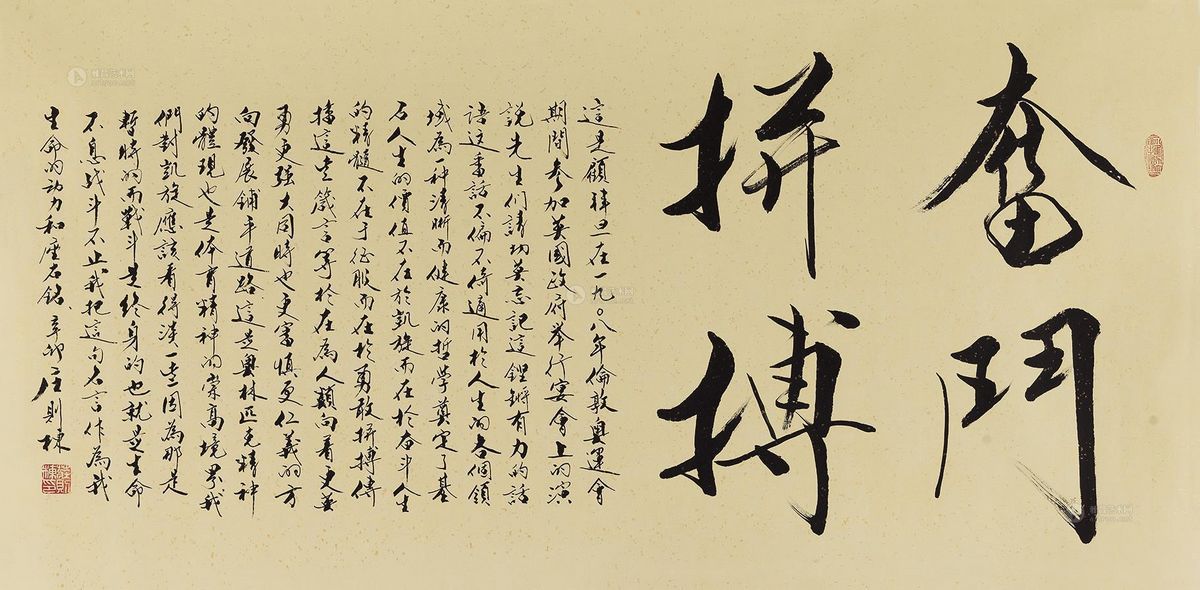 奮鬥
拼搏
這是顧拜旦在一九〇八年倫敦奧運會
期間參加英國政府举行宴會上的演
說先生們請切莫忘記這鏗鏘有力的話
語这番話不偏不倚適用於人生的各個領
域為一种清晰而健康的哲學奠定了基
石人生的價值不在於凱旋而在於奋斗人生
的精髓不在于征服而在於勇敢拼搏傳
播這些箴言等於在為人類向着更英
勇更强大同時也更審慎更仁義的方
向發展鋪平道路這是奥林匹克精神
的體現也是体育精神的崇高境界我
們對凱旋應該看得淡一些因為那是
暫時的而戰斗是终身的也就是生命
不息战斗不止我把這句名言作為我
生命的动力和座右銘 辛卯 庄則棟